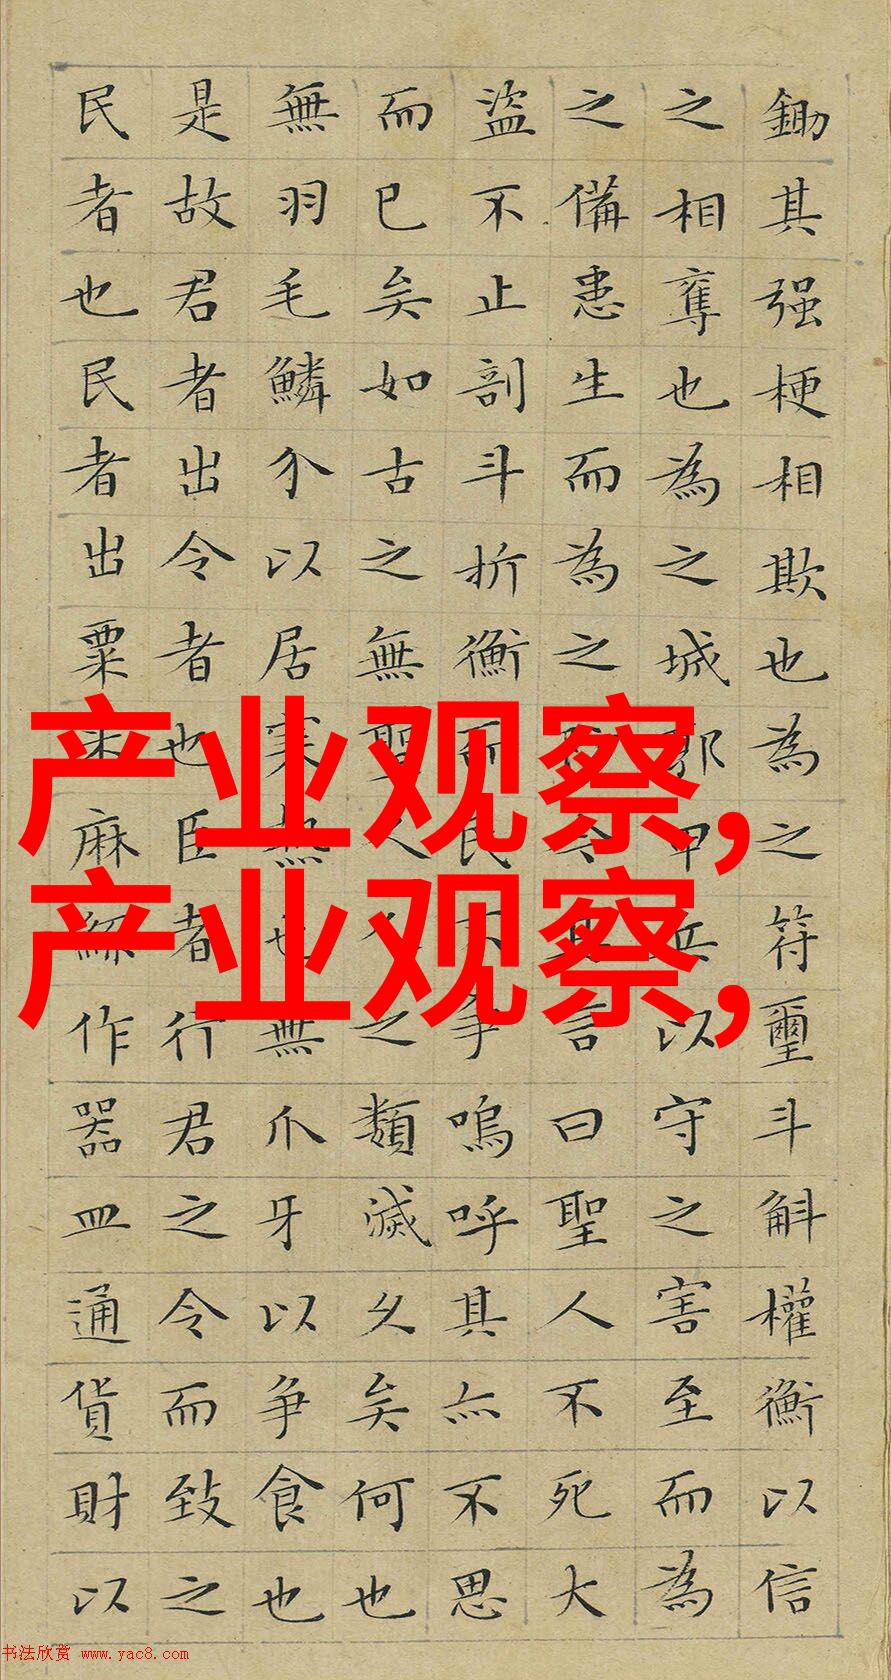 鋤其强梗相欺也為之符璽斗斛權衡以信
之相奪也為之城郭甲兵以守之害至而為
之備患生而為之防今其言曰聖人不死大
盜不止剖斗折衡而民不争嗚呼其亦不思
而已矣如古之無聖人人之類滅久矣何也
無羽毛鱗介以居寒熱也無爪牙以争食也
是故君者出令者也臣者行君之令而致之
民者也民者出粟米麻絲作器皿通貨財以
产业观察,
产业观察,
书法欣赏 www.yac8.com